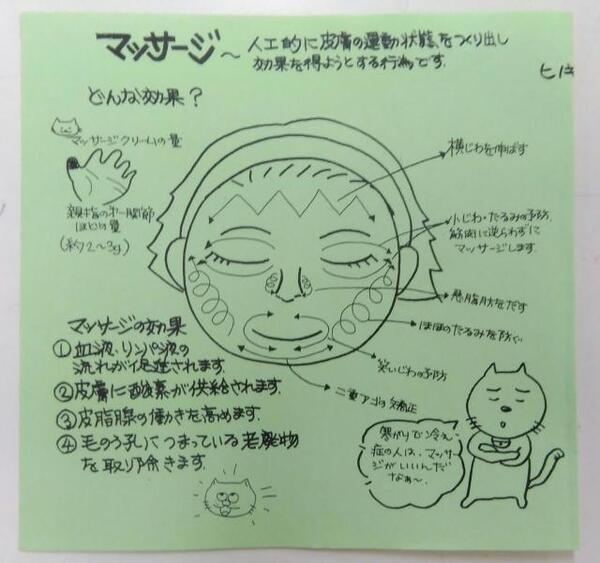 マッサージ～人工的に皮膚の運動状態をつくり出し
効果を得ようとする行為です.
どんな効果？
マッサージクリームの量
親指の第一関節
ほどの量
(約2～3g)
横じわを伸ばす
小じわ・たるみの予防
筋肉に逆らわずに
マッサージします.
悪脂肪をだす
ほほのたるみを防ぐ
笑いじわの予防
二重アゴの矯正
マッサージの効果
①血液・リンパ液の
流れが促進されます.
②皮膚に酸素が供給されます.
③皮脂腺の働きを高めます.
④毛のう孔につまっている老廃物
を取り除きます.
寒がりで冷え
症の人は、マッサー
ジがいいんだ
なぁ～.